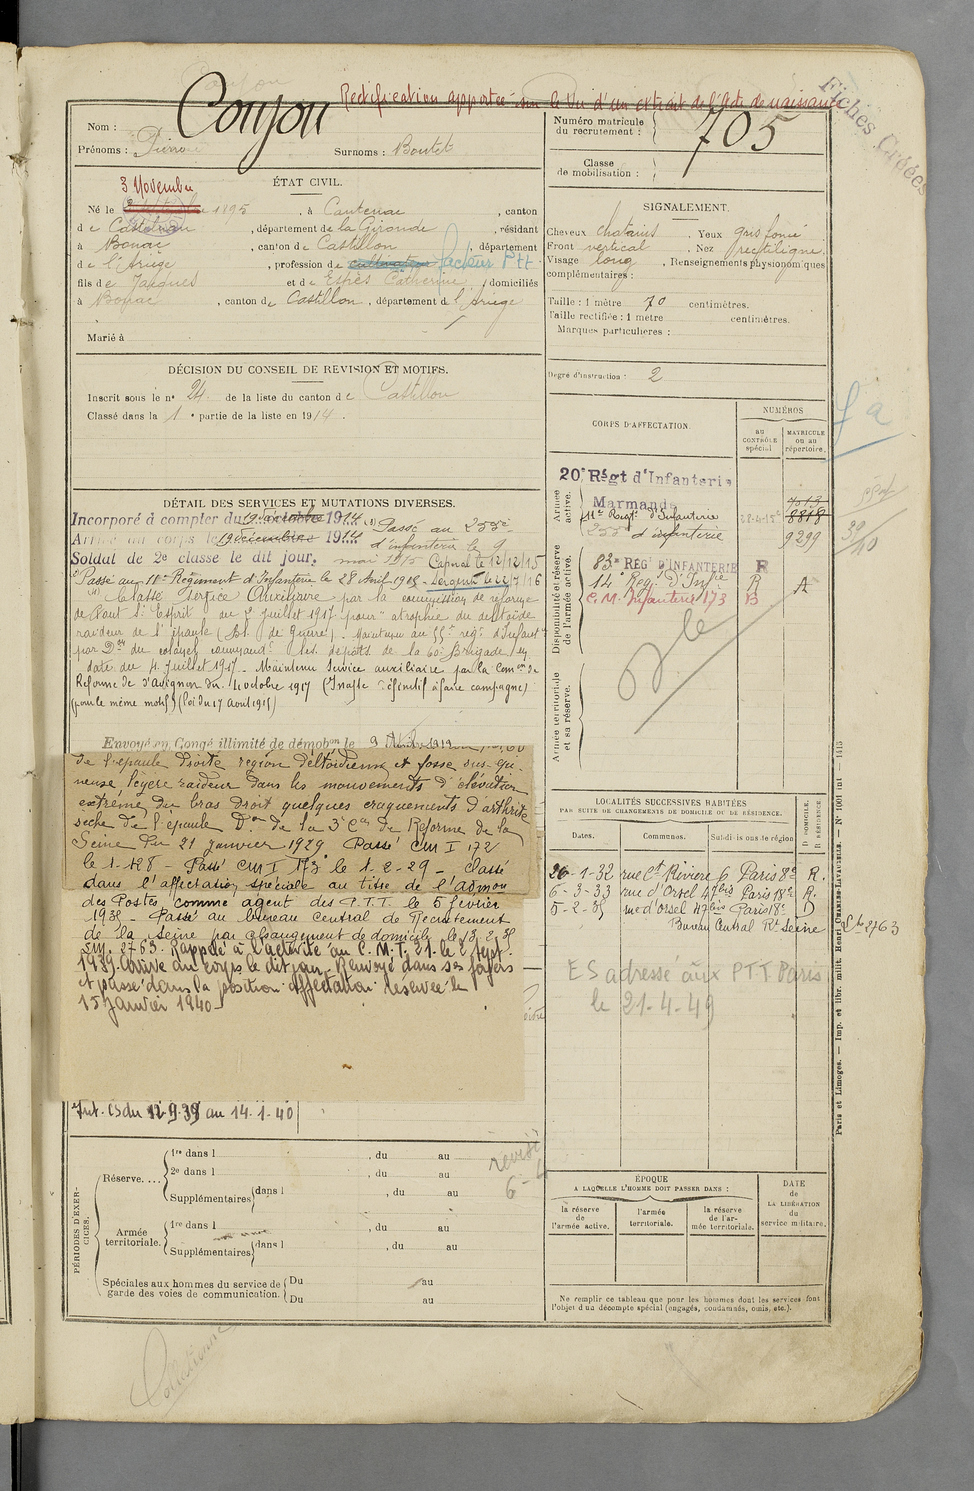 Rectification apportée sur le vu d'un extrait de l'acte de naissance
Fiches Créées
Conjou
Nom :
Prénoms : Pierre
Surnoms : Boutet
ÉTAT CIVIL.
3 Novembre
Né le 1895, à Cantenac, canton
de Castelnau, département de la Gironde, résidant
à Bonac, canton de Castillon, département
de l'Ariège, profession de cultivateur facteur Ptt
fils de Jacques et de Estrès Catherine, domiciliés
à Bonac, canton de Castillon, département de l'Ariège
Marié à
DÉCISION DU CONSEIL DE REVISION ET MOTIFS.
Inscrit sous le n° 24 de la liste du canton de Castillon
Classé dans la 1e partie de la liste en 1914.
DÉTAIL DES SERVICES ET MUTATIONS DIVERSES.
Incorporé à compter du 19 décembre 1914 Passé au 255e
Arrivé au corps le 19 décembre 1914 d'infanterie le 9
Soldat de 2e classe le dit jour. mai 1915 Caporal le 12/12/15
Passé au 11e Régiment d'Infanterie le 28 Avril 1915 - Sergent le 22/7/16
Classé service Auxiliaire par la commission de réforme
de Pont St Esprit du 2 juillet 1917 pour "atrophie du deltoïde
raideur de l'épaule (Bl. de Guerre). Maintenu au 55e régt d'Infant
par Don du colonel command. les dépôts de la 60e Brigade en
date du 4 Juillet 1917. Maintenu Service auxiliaire par la Comon de
Réforme de d'Avignon du 4 octobre 1917 (Inapte définitif à faire campagne)
(pour le même motif) (loi du 17 Août 1915)
Envoyé en Congé illimité de démobon le 9 1919
de l'épaule droite région deltoïdienne et fosse sus-épi
neuse légère raideur dans les mouvements d'élévation
extrême du bras droit quelques craquements d'arthrite
sèche de l'épaule Don de la 3e Con de Réforme de la
Seine du 21 janvier 1929 Passé CM I 172
le 1-1-28 - Passé CM I 173 le 1-2-29 - Classé
dans l'affectation spéciale au titre de l'admon
des Postes comme agent des P.T.T. le 5 février
1935 - Passé au bureau central de Recrutement
de la Seine par changement de domicile le 13-2-35
sm. 2763. Rappelé à l'activité au C.M.I. 21 le 2 sept.
1939. Arrivé au corps le dit jour. Renvoyé dans ses foyers
et passé dans la position Affectation réservée le
15 janvier 1940
Int. CS du 12-9-39 au 14-1-40
PÉRIODES D'EXERCICES.
Réserve....
1re dans l , du au
2e dans l , du au
Supplémentaires dans l , du au
Armée territoriale.
1re dans l , du au
Supplémentaires dans l , du au
Spéciales aux hommes du service de garde des voies de communication.
Du au
Du au
revisé
Collationné
Numéro matricule du recrutement : 705
Classe de mobilisation :
SIGNALEMENT.
Cheveux chatains. Yeux gris foncé
Front vertical. Nez rectiligne
Visage long. Renseignements physionomiques
complémentaires :
Taille : 1 mètre 70 centimètres.
Taille rectifiée : 1 mètre centimètres.
Marques particulières :
Degré d'instruction : 2
CORPS D'AFFECTATION.
NUMÉROS
au CONTRÔLE spécial
MATRICULE ou au répertoire.
Armée active.
20e Régt d'Infanterie
Marmande
11e Régt d'Infanterie 8818
255e d'infanterie 9299
Disponibilité et réserve de l'armée active.
83e RÉGT D'INFANTERIE R
14e Rég. d'Infie R A
C.M. Infanterie 173 B
Armée territoriale et sa réserve.
LOCALITÉS SUCCESSIVES HABITÉES
PAR SUITE DE CHANGEMENTS DE DOMICILE OU DE RÉSIDENCE.
Dates. Communes. Subdivisions de région
D DOMICILE. R RÉSIDENCE
26-1-32 rue Ct Rivière 6 Paris 8e R.
6-3-33 rue d'Orsel 47bis Paris 18e R.
5-2-35 rue d'Orsel 47bis Paris 18e D
Bureau Central Rt Seine 2763
ES adressé aux PTT Paris
le 21-4-49
ÉPOQUE
A LAQUELLE L'HOMME DOIT PASSER DANS :
la réserve de l'armée active.
l'armée territoriale.
la réserve de l'armée territoriale.
DATE de LA LIBÉRATION du service militaire.
Ne remplir ce tableau que pour les hommes dont les services font
l'objet d'un décompte spécial (engagés, condamnés, omis, etc.).
Paris et Limoges. — Imp. et libr. milit. Henri CHARLES-LAVAUZELLE. — N° 1001 — 1413